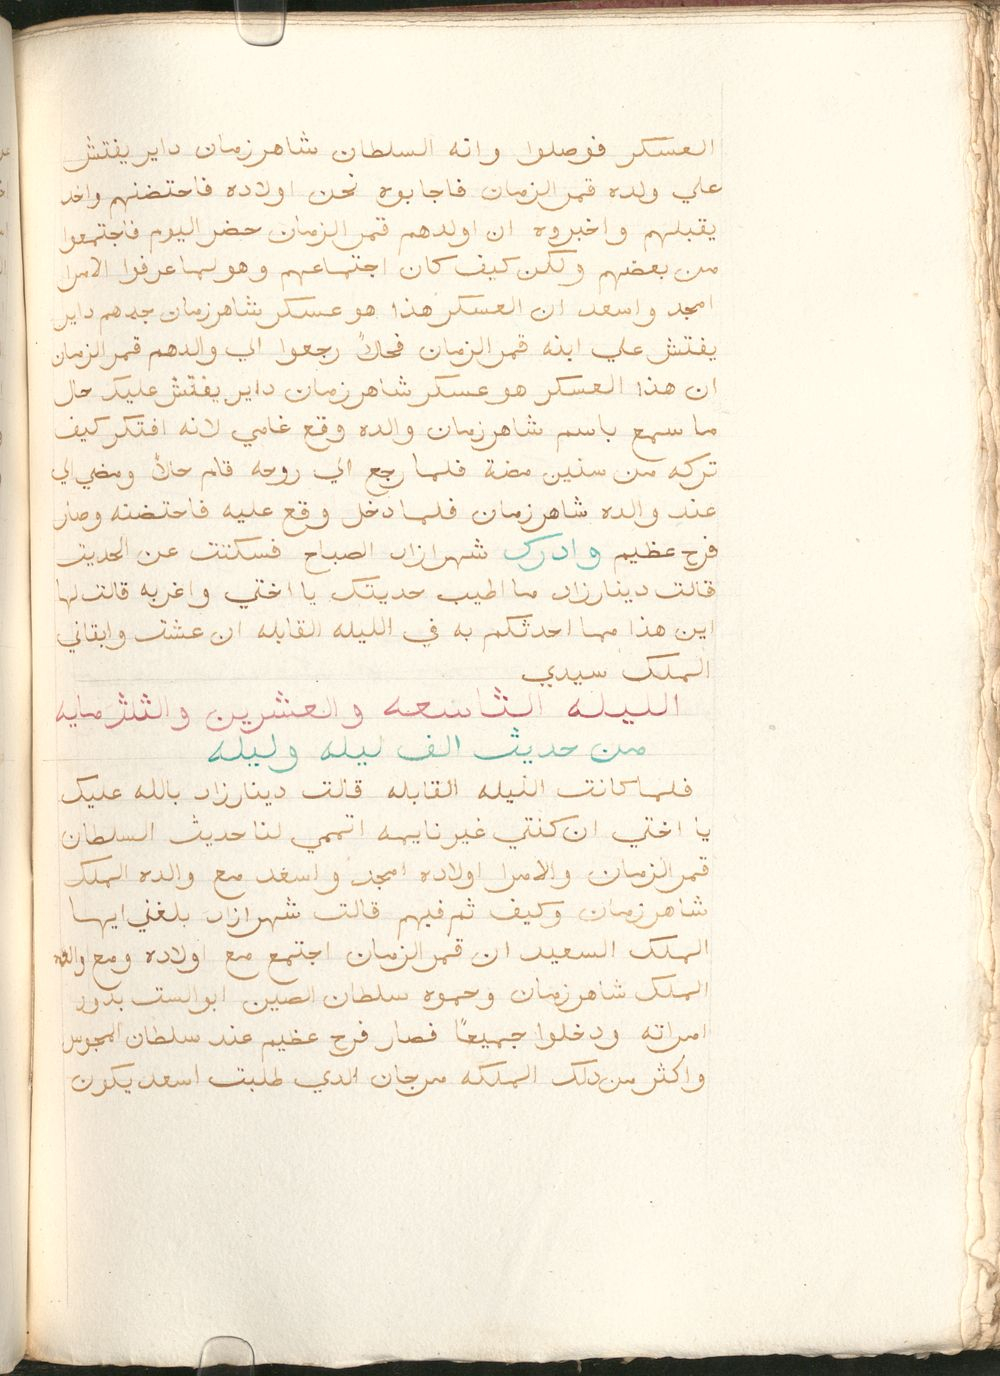 العسكر فوصلوا وانه السلطان شاهرزمان داير يفتش
علي ولده قمر الزمان فاجابوه نحن اولاده فاحتضنهم واخد
يقبلهم واخبروه ان اولدهم قمر الزمان حضر اليوم فاجتمعوا
من بعضهم ولكن كيف كان اجتماعهم وهو لما عرفوا الامرا
امجد واسعد ان العسكر هذا هو عسكر شاهرزمان جدهم داير
يفتش علي ابنه قمر الزمان فحالاً رجعوا الي والدهم قمر الزمان
ان هذا العسكر هو عسكر شاهرزمان داير يفتش عليك حال
ما سمع باسم شاهرزمان والده وقع غامي لانه افتكر كيف
تركه من سنين مضة فلما رجع الي روحه قام حالاً ومضي الي
عند والده شاهرزمان فلما دخل وقع عليه فاحتضنه وصار
فرح عظيم وادرك شهرازاد الصباح فسكتت عن الحديت
قالت دينارزاد ما اطيب حديتك يا اختي واغربه قالت لها
اين هذا مما احدثكم به في الليله القابله ان عشت وابقاني
الملك سيدي
الليله التاسعه والعشرين والثلثمايه
من حديث الف ليله وليله
فلما كانت الليله القابله قالت دينارزاد بالله عليك
يا اختي ان كنتي غير نايمه اتممي لنا حديث السلطان
قمر الزمان والامرا اولاده امجد واسعد مع والده الملك
شاهرزمان وكيف تم فيهم قالت شهرازاد بلغني ايها
الملك السعيد ان قمر الزمان اجتمع مع اولاده ومع والده
الملك شاهرزمان وحموه سلطان الصين ابو الست بدور
امراته ودخلوا جميعًا فصار فرح عظيم عند سلطان المجوس
واكثر من دلك الملكه مرجان الدي طلبت اسعد يكون